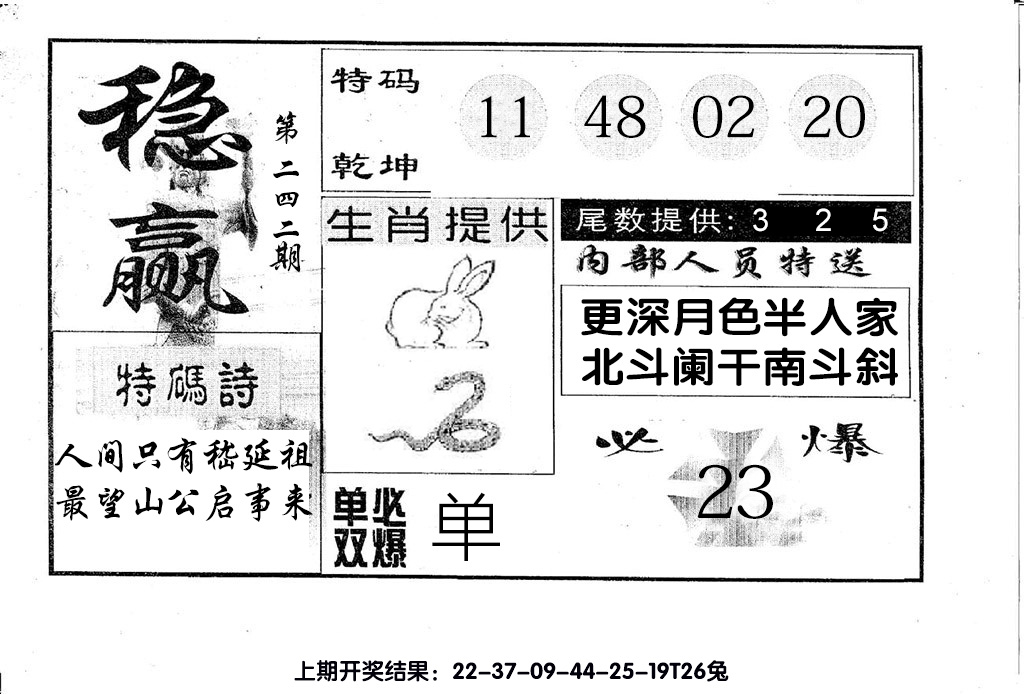 稳赢
第二四二期
特码
乾坤
11 48 02 20
生肖提供
尾数提供: 3 2 5
内部人员特送
更深月色半人家
北斗阑干南斗斜
特碼詩
人间只有嵇延祖
最望山公启事来
必爆
23
单双
必爆
单
上期开奖结果：22-37-09-44-25-19T26兔